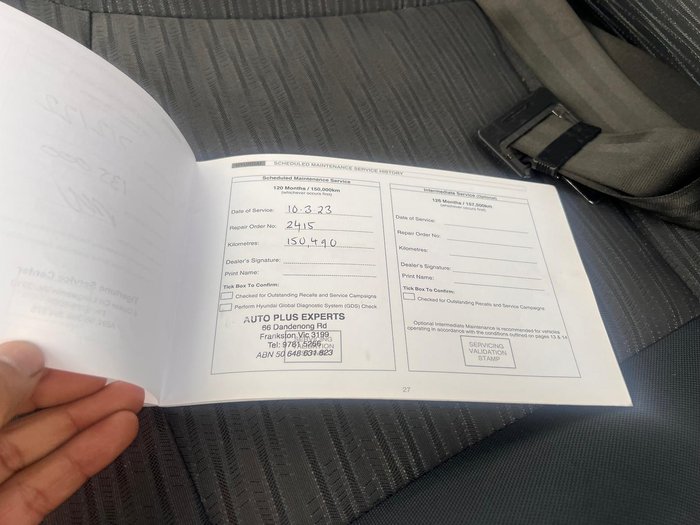 HYUNDAI SCHEDULED MAINTENANCE SERVICE HISTORY
Scheduled Maintenance Service
120 Months / 150,000km
(whichever occurs first)
Date of Service: 10.3.23
Repair Order No: 2415
Kilometres: 150,490
Dealer's Signature:
Print Name:
Tick Box To Confirm:
Checked for Outstanding Recalls and Service Campaigns
Perform Hyundai Global Diagnostic System (GDS) Check
AUTO PLUS EXPERTS
66 Dandenong Rd
Frankston Vic 3199
Tel: 9781 5266
ABN 50 648 631 823
Intermediate Service (Optional)
126 Months / 157,000km
(whichever occurs first)
Date of Service:
Repair Order No:
Kilometres:
Dealer's Signature:
Print Name:
Tick Box To Confirm:
Checked for Outstanding Recalls and Service Campaigns
Optional Intermediate Maintenance is recommended for vehicles
operating in accordance with the conditions outlined on pages 13 & 14
SERVICING
VALIDATION
STAMP
27